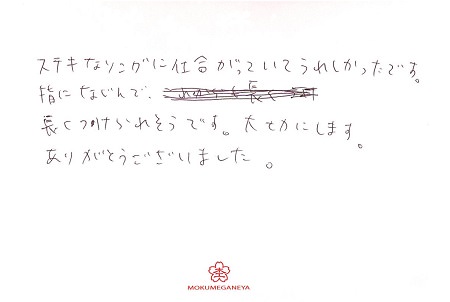 ステキなリングに仕合がっていてうれしかったです。
指になじんで、
長くつけられそうです。大せかにします。
ありがとうございました。
MOKUMEGANEYA